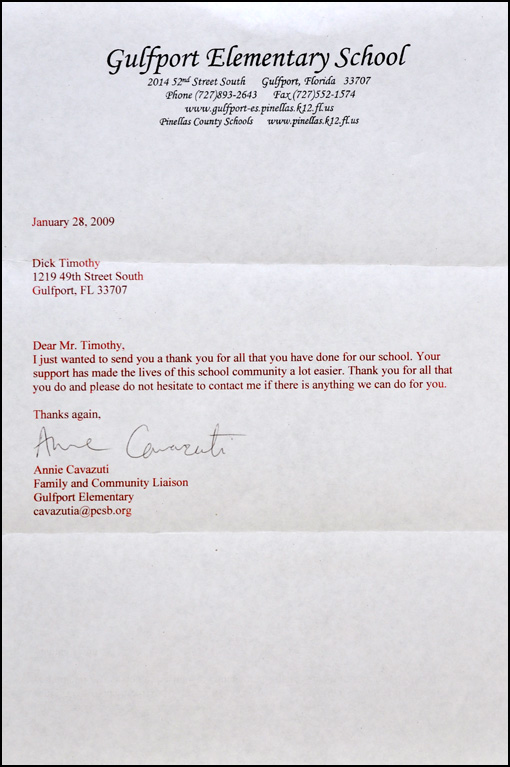 Gulfport Elementary School
2014 52nd Street South Gulfport, Florida 33707
Phone (727)893-2643 Fax (727)552-1574
www.gulfport-es.pinellas.k12.fl.us
Pinellas County Schools www.pinellas.k12.fl.us
January 28, 2009
Dick Timothy
1219 49th Street South
Gulfport, FL 33707
Dear Mr. Timothy,
I just wanted to send you a thank you for all that you have done for our school. Your
support has made the lives of this school community a lot easier. Thank you for all that
you do and please do not hesitate to contact me if there is anything we can do for you.
Thanks again,
Anne Cavazuti
Annie Cavazuti
Family and Community Liaison
Gulfport Elementary
cavazutia@pcsb.org